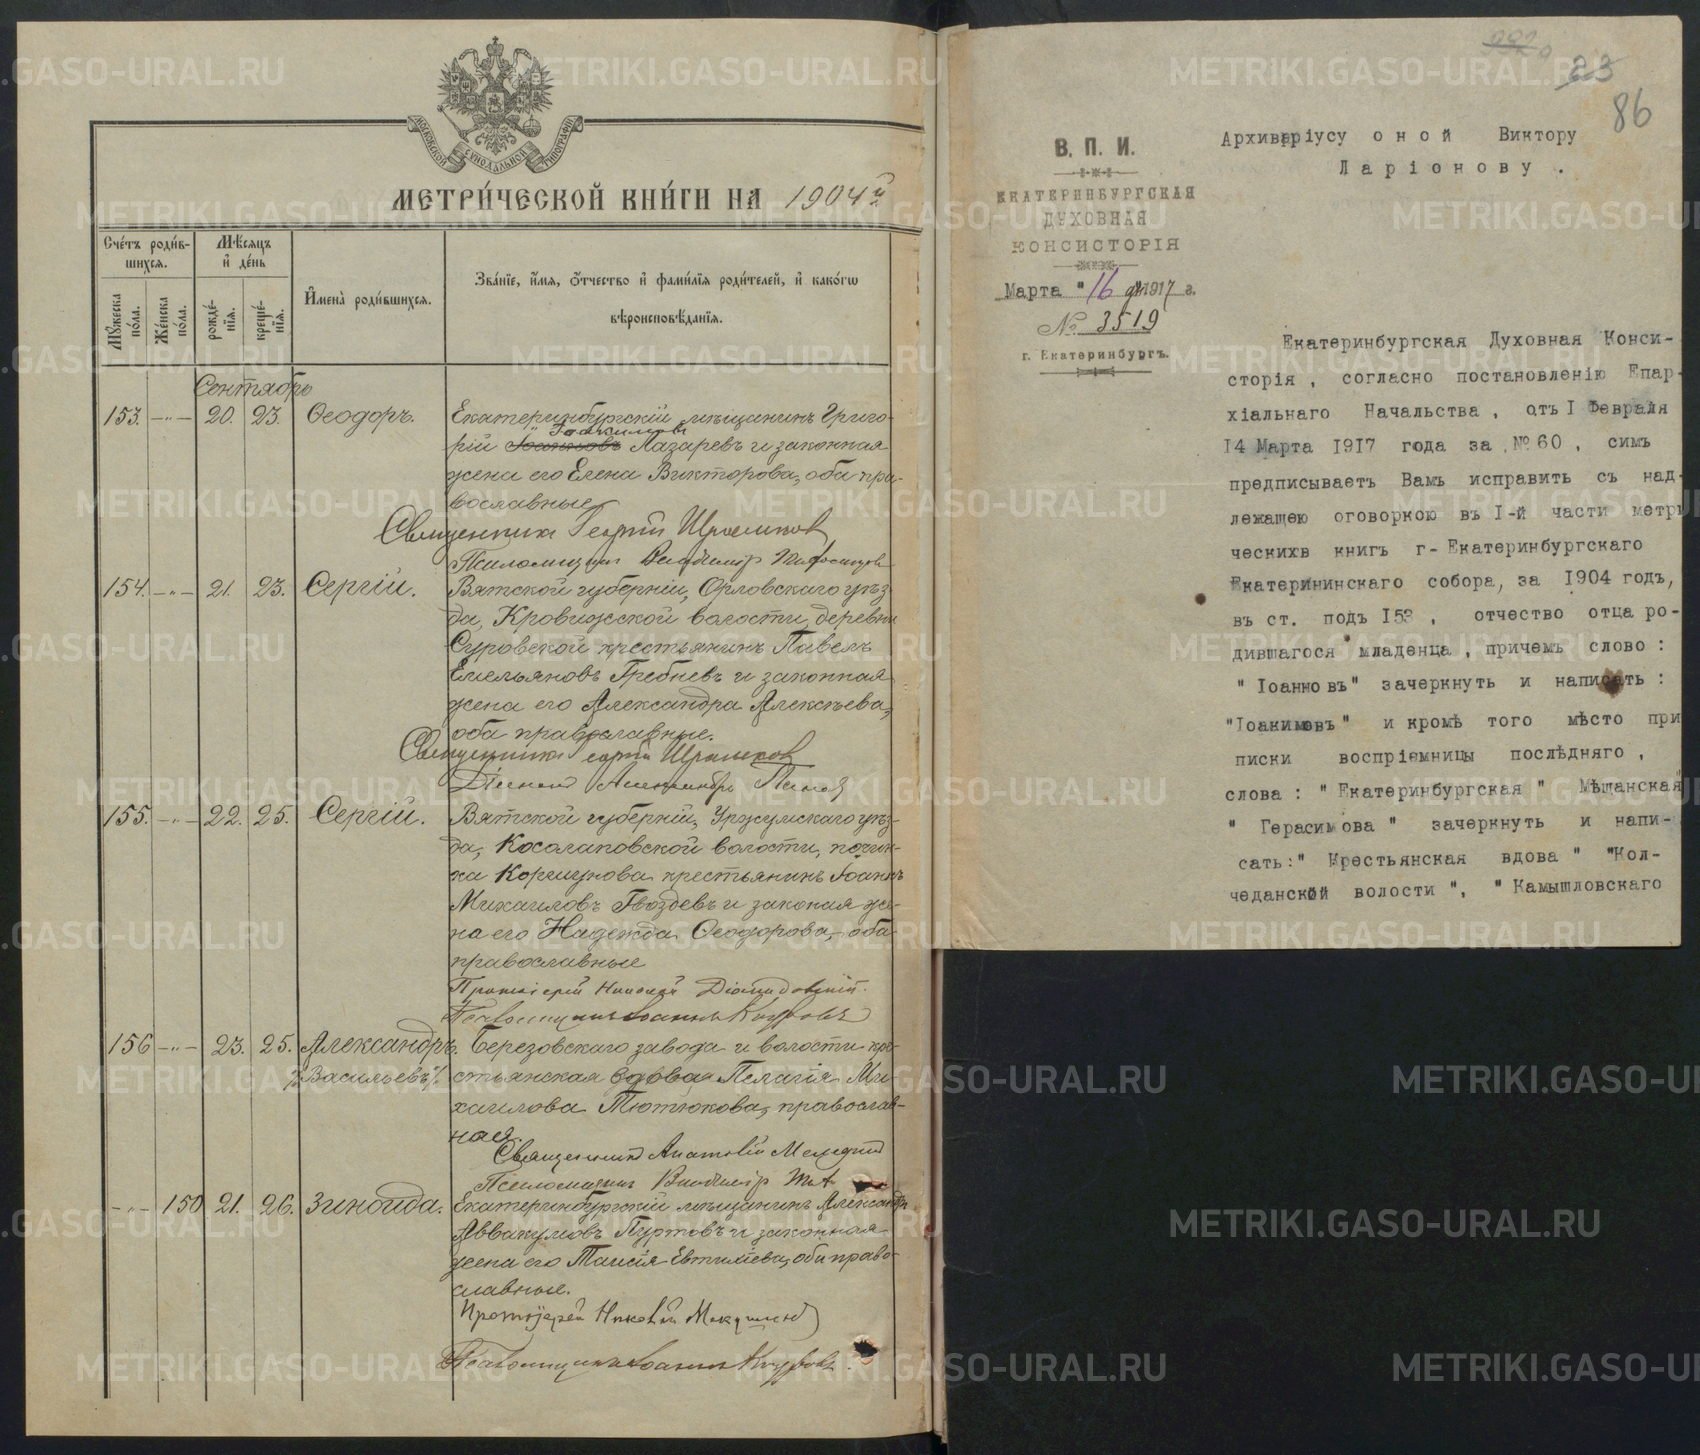 МОСКОВСКОЙ СѴНОДАЛЬНОЙ ТИПОГРАФІИ
МЕТРИ́ЧЕСКОЙ КНИ́ГИ НА 1904й
Сче́тъ роди́в-
шихсѧ.
Мѣ́сѧцъ
и҆ де́нь
И҆мена̀ роди́вшихсѧ.
Зва́нїе, и҆́мѧ, ѻ҆́тчество и҆ фами́лїѧ роди́телей, и҆ како́гѡ
вѣроисповѣ́данїѧ.
Мꙋ́жеска по́ла.
Же́нска по́ла.
рожде́-
нїѧ.
креще́-
нїѧ.
Сентябрь
153. -"- 20. 23. Ѳеодоръ. Екатеринбургскій мѣщанинъ Григо-
Іоакимовъ
рій Іоанновъ Лазаревъ и законная
жена его Елена Викторова, оба пра-
вославные
Священникъ Георгій
Псаломщикъ Владимір
154. -"- 21. 23. Сергій. Вятской губерніи, Орловскаго уѣз-
да, Кровижской волости, деревни
Суровской крестьянинъ Павелъ
Емельяновъ Гребневъ и законная
жена его Александра Алексѣева,
оба православные.
Священникъ Георгій
Діаконъ Александръ
155. -"- 22. 25. Сергій. Вятской губерніи, Уржумскаго уѣз-
да, Косолаповской волости, почин-
ка Коршунова крестьянинъ Іоаннъ
Михаиловъ Гвоздевъ и законая же-
на его Надежда Ѳеодорова, оба
православные
Протоіерей Николай Діомидовскій.
Псаломщикъ Іоаннъ
156 -"- 23. 25. Александръ. Березовскаго завода и волости кре-
/:Васильевъ:/ стьянская вдова Пелагія Ми-
хаилова Тютюкова, православ-
ная.
Священникъ Анатолій
Псаломщикъ Владимір
-"- 150 21. 26. Зинаида. Екатеринбургскій мѣщанинъ Александръ
Аввакумовъ Пуртовъ и законная
жена его Таисія Евтихіева, оба право-
славные.
Протоіерей
Псаломщикъ Іоаннъ
23
86
В. П. И.
ЕКАТЕРИНБУРГСКАЯ
ДУХОВНАЯ
КОНСИСТОРІЯ
Марта "16 дня 1917 г.
№ 3519
г. Екатеринбургъ.
Архиваріусу оной Виктору
Ларіонову .
Екатеринбургская Духовная Конси-
сторія , согласно постановленію Епар-
хіальнаго Начальства , отъ I Февраля
I4 Марта I9I7 года за № 60 , симъ
предписываетъ Вамъ исправить съ над-
лежащею оговоркою въ I-й части метри
ческихъ книгъ г-Екатеринбургскаго
Екатерининскаго собора, за I904 годъ,
въ ст. подъ I53 , отчество отца ро-
дившагося младенца , причемъ слово :
" Іоанновъ" зачеркнуть и написать :
"Іоакимовъ" и кромѣ того мѣсто при
писки воспріемницы послѣдняго ,
слова : " Екатеринбургская " Мѣщанская
" Герасимова " зачеркнуть и напи-
сать:" Крестьянская вдова " "Кол-
чеданской волости ", " Камышловскаго
METRIKI.GASO-URAL.RU